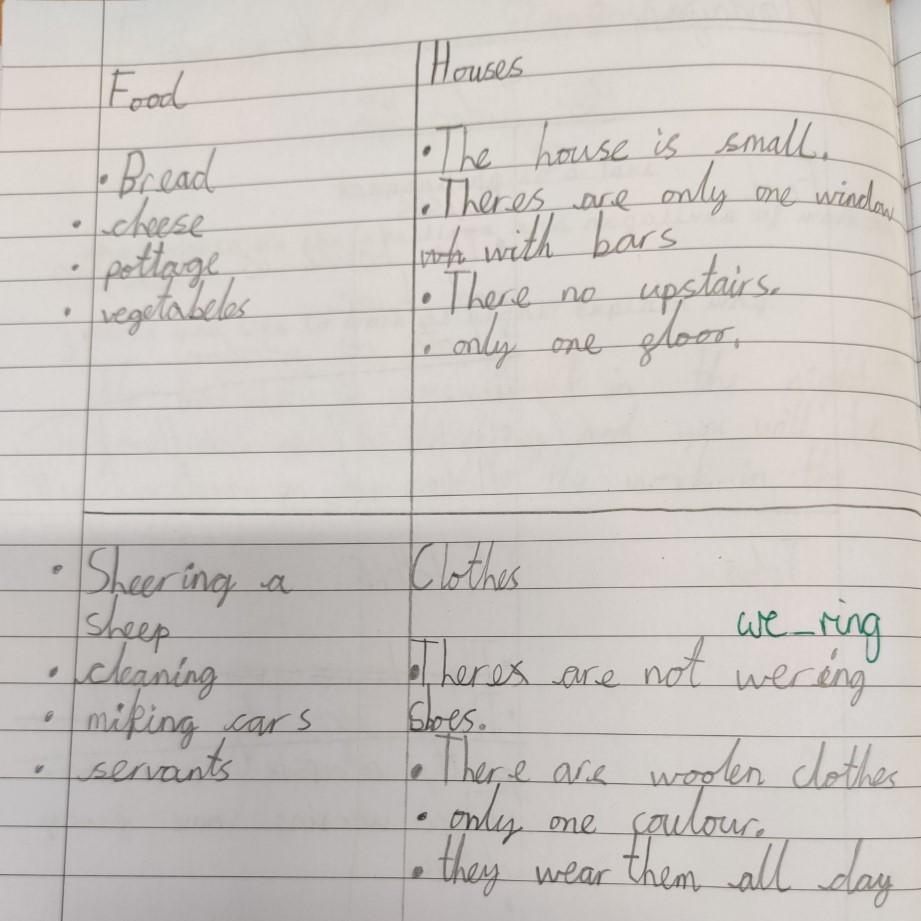 Food
• Bread
• cheese
• pottage
• vegetabeles
Houses
• The house is small.
• Theres are only one window
with bars
• There no upstairs.
• only one floor.
• Sheering a
sheep
• cleaning
• milking cars
• servants
Clothes
we_ring
• Theres are not wering
shoes.
• There are woolen clothes
• only one coulour.
• they wear them all day